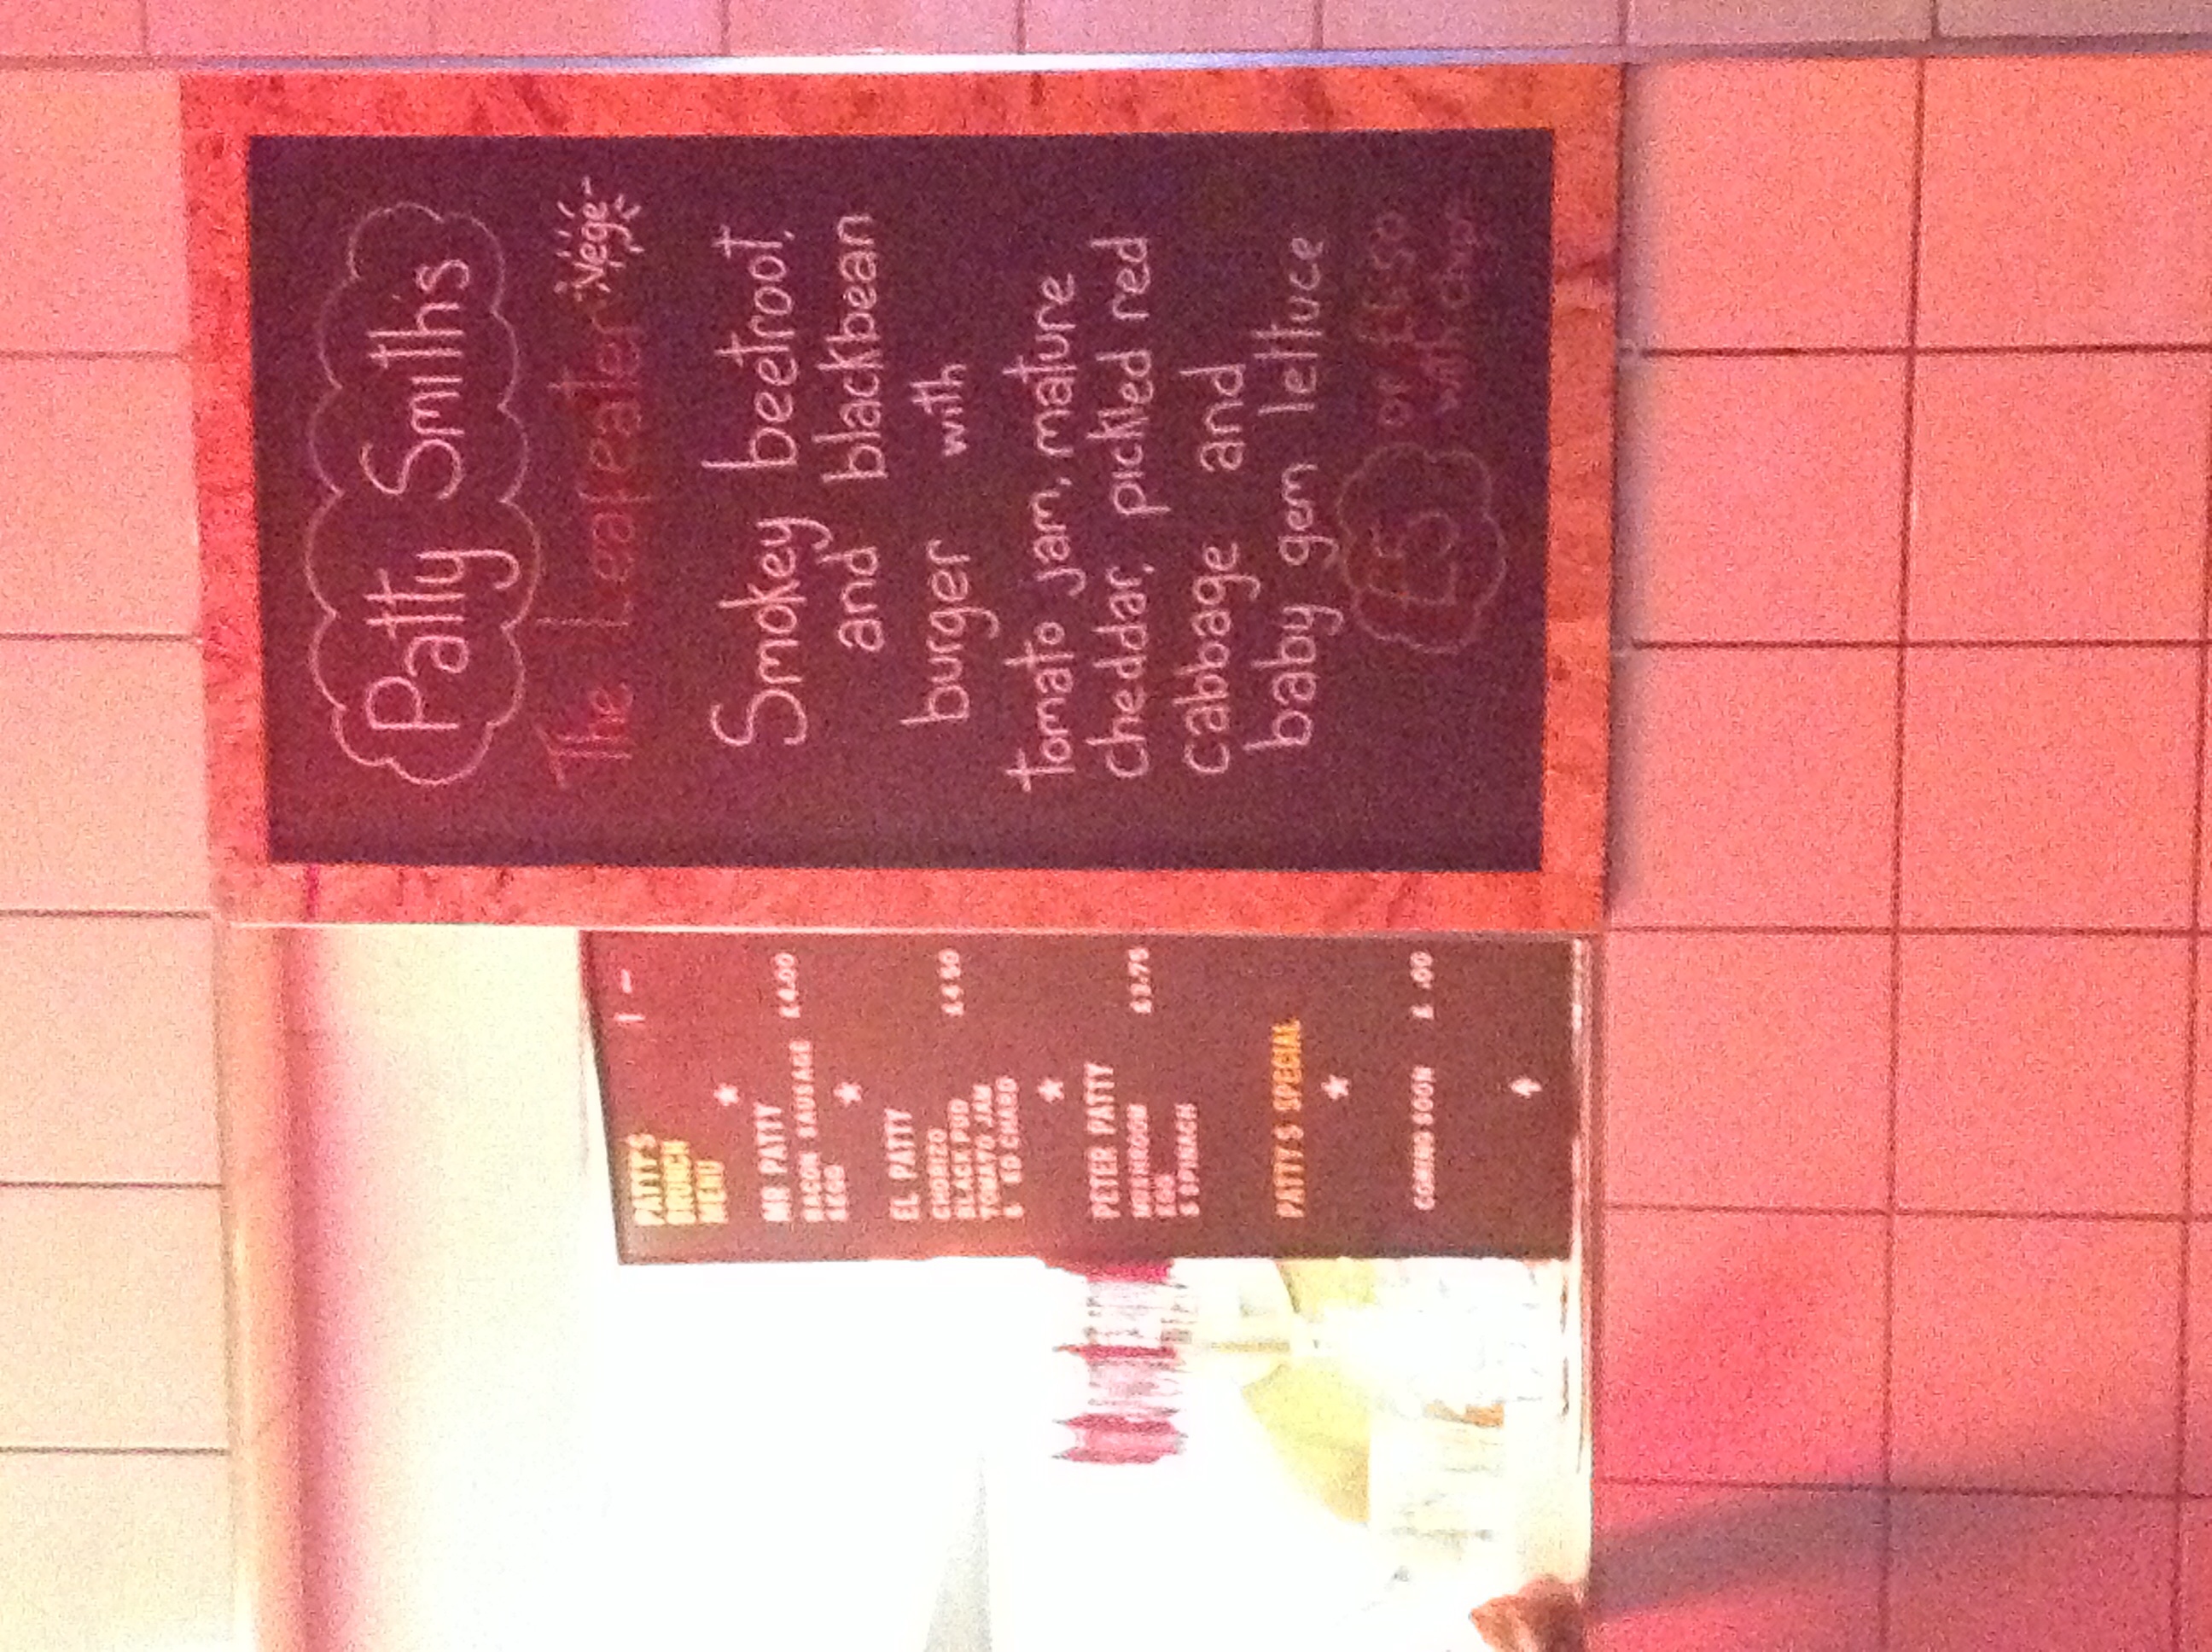 Patty Smiths
The Leafeater Vege
Smokey beetroot,
and blackbean
burger with
tomato jam, mature
cheddar, pickled red
cabbage and
baby gem lettuce
£5 or £6.50
with chips
PATTY'S
BRUNCH
MENU
MR PATTY
BACON SAUSAGE £4.00
& EGG
EL PATTY £4.50
CHORIZO
BLACK PUD
TOMATO JAM
PETER PATTY £3.75
MUSHROOM
EGG
& SPINACH
PATTY'S SPECIAL
COMING SOON £ .00